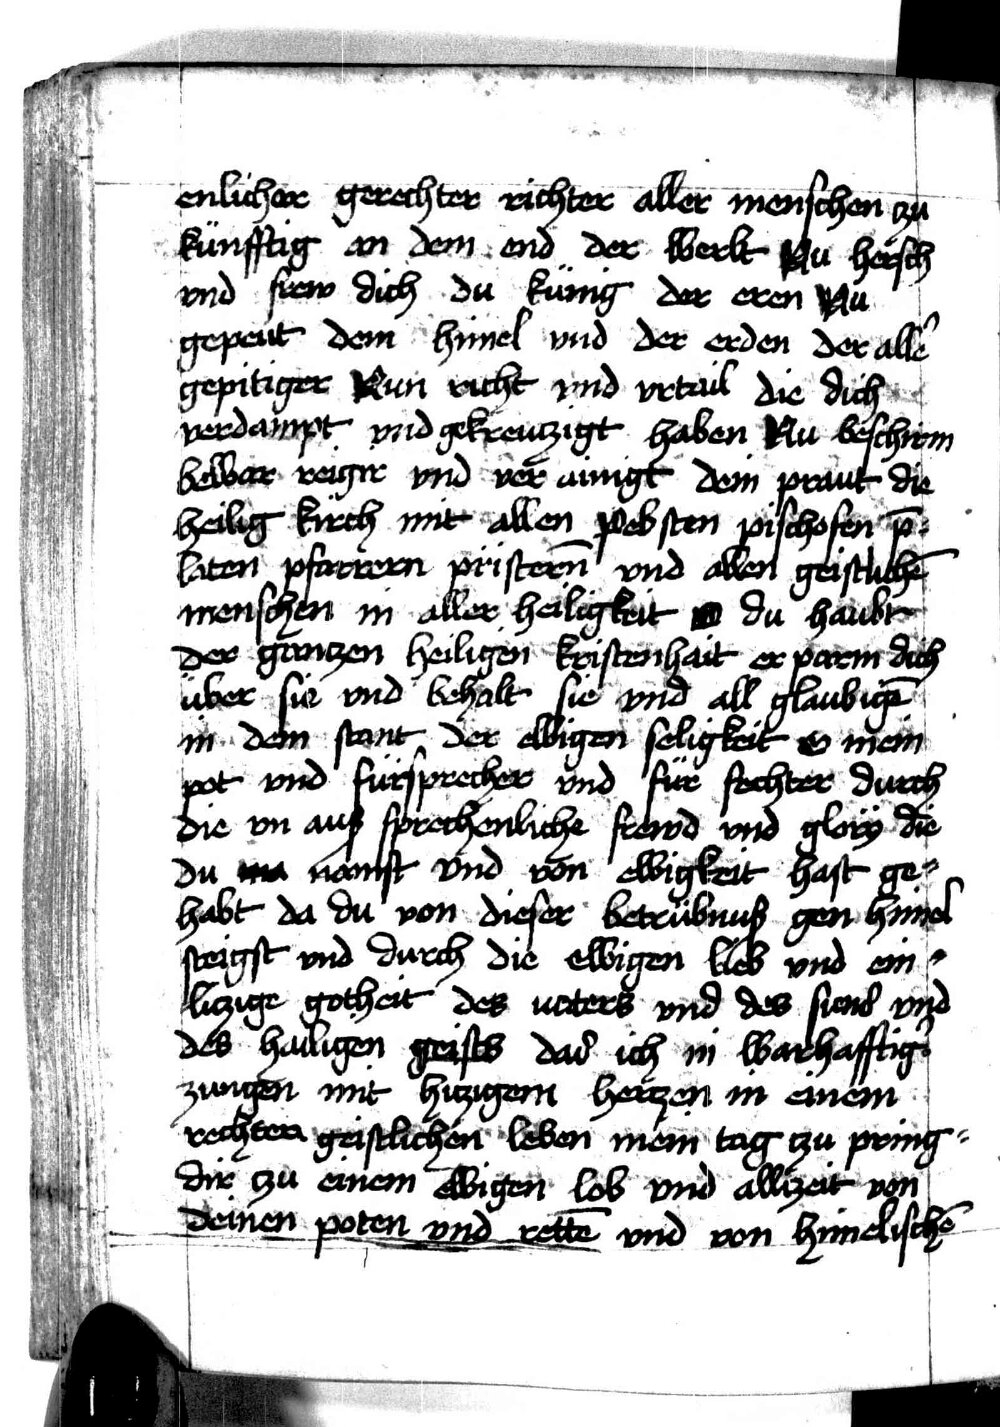 enlicher gerechter richter aller menschen zu
künfftig an dem end der werlt Nu hersch
vnd frew dich du künig der eren Nu
gepeut dem himel vnd der erden der alle
gepitiger Nun richt vnd vrtail die dich
verdampt vnd gekreutzigt haben Nu beschirm
bewar reigir vnd ver ainigt dein praut die
heilig kirch mit allen Pebsten pischofen p̄
laten pfarrern pristern̄ vnd allen geistlichē
menschen in aller heiligkeit O du haubt
der gantzen heiligen kristenhait er parm dich
über sie vnd behalt sie vnd all glaubigē
in dem stant der ewigen seligkeit O mein
pot vnd fürsprecher vnd für fechter durch
die vn auß sprechenliche frewd vnd glory die
du namst vnd von ewigkeit hast ge=
habt da du von dieser betrübnuß gen himel
steigst vnd durch die ewigen lieb vnd ein=
litzige gotheit des vaters vnd des suns vnd
des hailigen geists das ich in warhafftig
zungen mit hitzigem hertzen in einem
rechten geistlichen leben mein tag zu pring=
dir zu einem ewigen lob vnd allizeit von
deinen poten vnd rettē vnd von himelischē